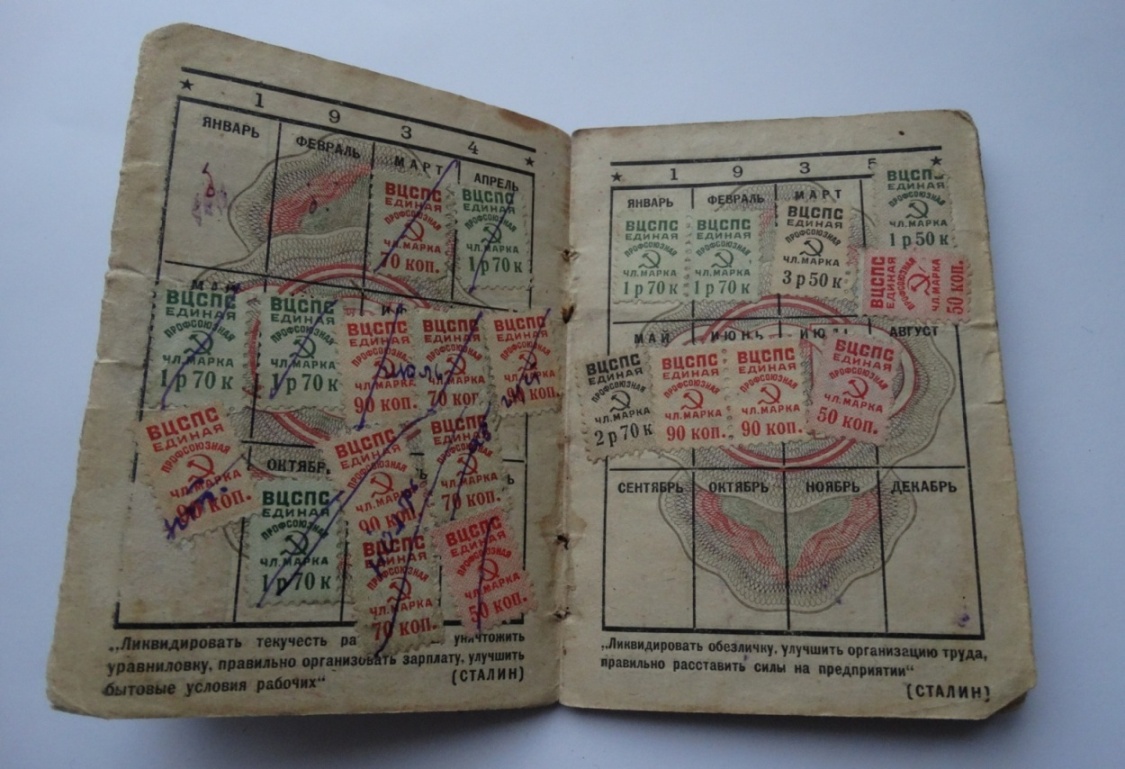 1 9 3 4
ЯНВАРЬ ФЕВРАЛЬ МАРТ АПРЕЛЬ
ВЦСПС
ЕДИНАЯ
ПРОФСОЮЗНАЯ
ЧЛ.МАРКА
70 КОП.
ЕДИНАЯ
ПРОФСОЮЗНАЯ
ЧЛ.МАРКА
1 р 70 к
МАЙ
ВЦСПС
ЕДИНАЯ
ПРОФСОЮЗНАЯ
ЧЛ.МАРКА
1 р 70 к
ВЦСПС
ЕДИНАЯ
ПРОФСОЮЗНАЯ
ЧЛ.МАРКА
1 р 70 к
ВЦСПС
ЕДИНАЯ
ЧЛ.МАРКА
90 КОП.
ВЦСПС
ЕДИНАЯ
ЧЛ.МАРКА
70 КОП.
ВЦСПС
ЕДИНАЯ
ПРОФСОЮЗНАЯ
ЧЛ.МАРКА
ВЦСПС
ЕДИНАЯ
ПРОФСОЮЗНАЯ
ЧЛ.МАРКА
90 КОП.
ОКТЯБР
ВЦСПС
ЕДИНАЯ
ПРОФСОЮЗНАЯ
ЧЛ.МАРКА
1 р 70 к
ВЦСПС
ЕДИНАЯ
ПРОФСОЮЗНАЯ
ЧЛ.МАРКА
90 КОП.
ВЦСПС
ЕДИНАЯ
ПРОФСОЮЗНАЯ
ЧЛ.МАРКА
70 КОП.
ВЦСПС
ЕДИНАЯ
ПРОФСОЮЗНАЯ
ЧЛ.МАРКА
70 КОП.
ВЦСПС
ЕДИНАЯ
ПРОФСОЮЗНАЯ
ЧЛ.МАРКА
50 КОП.
„Ликвидировать текучесть ра уничтожить
уравниловку, правильно организовать зарплату, улучшить
бытовые условия рабочих“
(СТАЛИН)
1 9 3 5
ЯНВАРЬ ФЕВРАЛЬ МАРТ
ВЦСПС
ЕДИНАЯ
ПРОФСОЮЗНАЯ
ЧЛ.МАРКА
1 р 70 к
ВЦСПС
ЕДИНАЯ
ПРОФСОЮЗНАЯ
ЧЛ.МАРКА
1 р 70 к
ВЦСПС
ЕДИНАЯ
ПРОФСОЮЗНАЯ
ЧЛ.МАРКА
3 р 50 к
ВЦСПС
ЕДИНАЯ
ПРОФСОЮЗНАЯ
ЧЛ.МАРКА
1 р 50 к
ВЦСПС
ЕДИНАЯ
ПРОФСОЮЗНАЯ
ЧЛ.МАРКА
50 КОП.
МАЙ ИЮНЬ ИЮЛЬ АВГУСТ
ВЦСПС
ЕДИНАЯ
ПРОФСОЮЗНАЯ
ЧЛ.МАРКА
2 р 70 к
ВЦСПС
ЕДИНАЯ
ПРОФСОЮЗНАЯ
ЧЛ.МАРКА
90 КОП.
ВЦСПС
ЕДИНАЯ
ПРОФСОЮЗНАЯ
ЧЛ.МАРКА
90 КОП.
ВЦСПС
ЕДИНАЯ
ПРОФСОЮЗНАЯ
ЧЛ.МАРКА
50 КОП.
СЕНТЯБРЬ ОКТЯБРЬ НОЯБРЬ ДЕКАБРЬ
„Ликвидировать обезличку, улучшить организацию труда,
правильно расставить силы на предприятии“
(СТАЛИН)